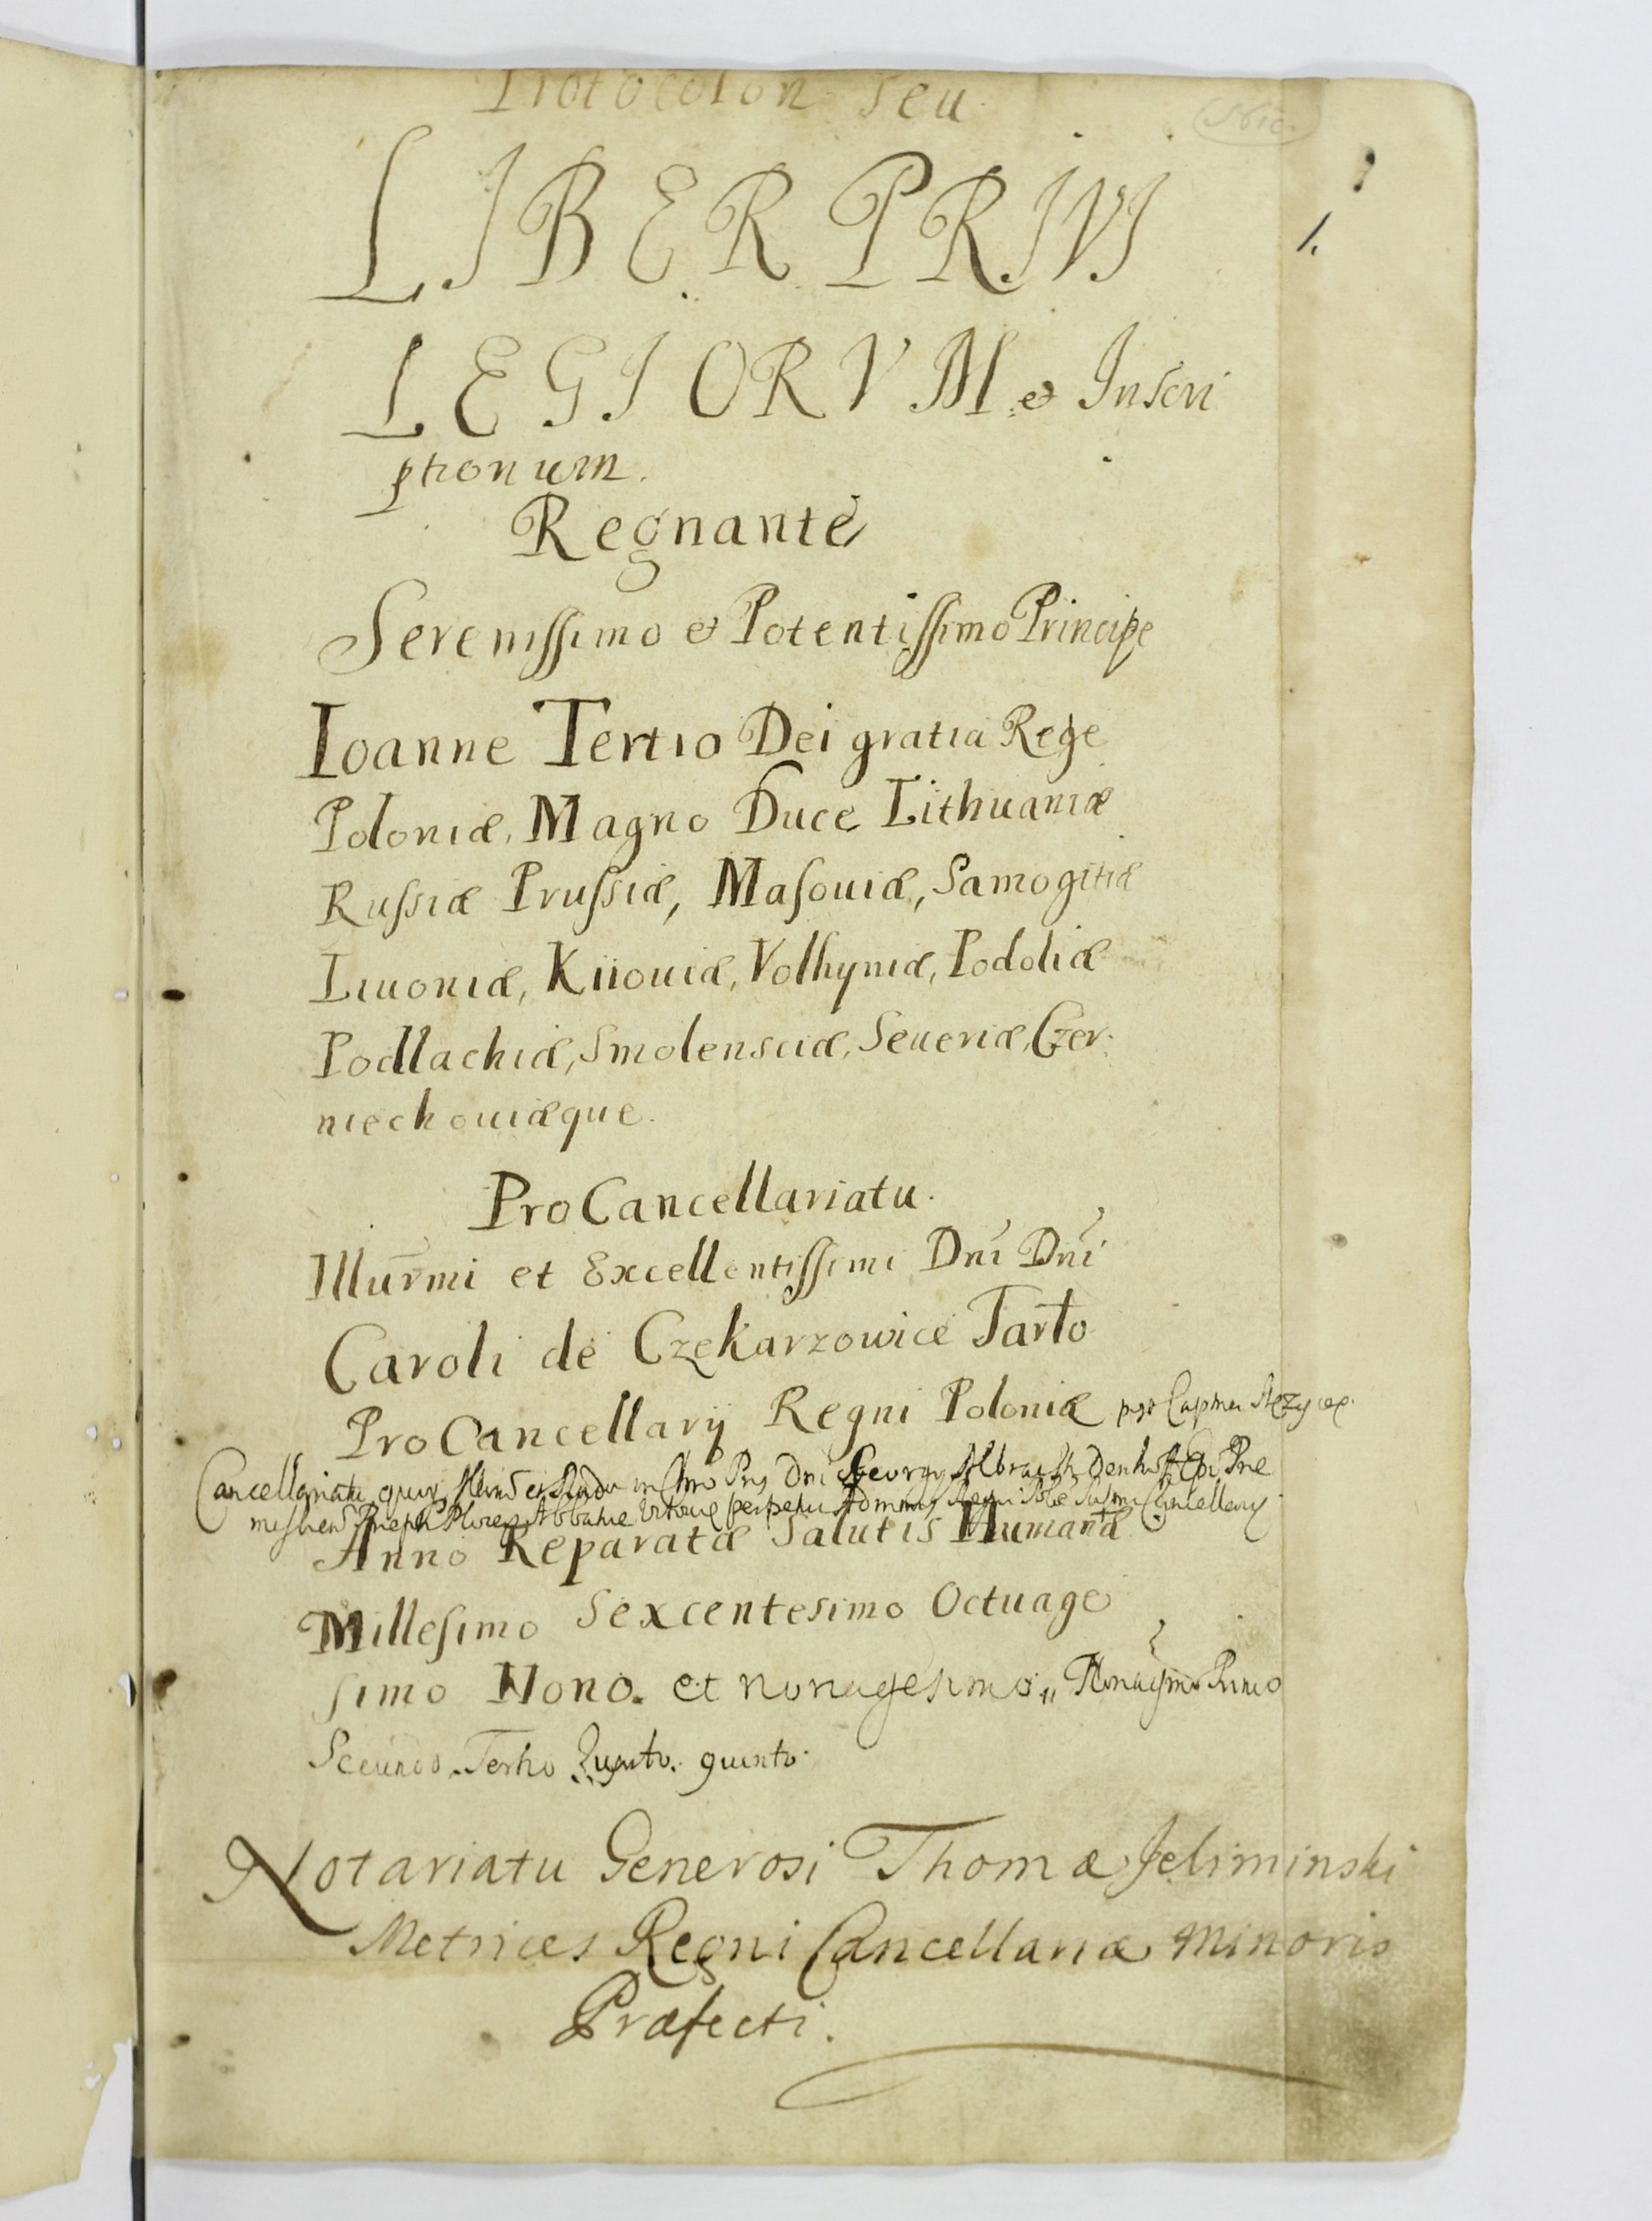 Protocolon seu
LIBER PRIVI
1.
LEGIORVM et Inscri
ptionum.
Regnante
Serenissimo et Potentissimo Principe
Ioanne Tertio Dei gratia Rege
Poloniæ, Magno Duce Lithuaniæ
Russiæ Prussiæ, Masouiæ, Samogitiæ
Liuoniæ, Kiiouiæ, Volhyniæ, Podoliæ
Podlachiæ, Smolensciæ, Seueriæ, Czer
niechouiæque.
ProCancellariatu.
Illurmi et Excellentissimi Dni Dni
Caroli de Czekarzowice Tarło
ProCancellarij Regni Poloniæ
Cancellariatu Dni Georgy Albracht Denhoff Epi Pre
perpetui Regni Cancellary
Anno Reparatæ Salutis Humanæ
Millesimo Sexcentesimo Octuage
simo Nono. et nonagesimo,, Nonagesimo Primo
Secundo. Tertio Quarto. quinto.
Notariatu Generosi Thomæ Jeliminski
Metrices Regni Cancellariæ Minoris
Præfecti.